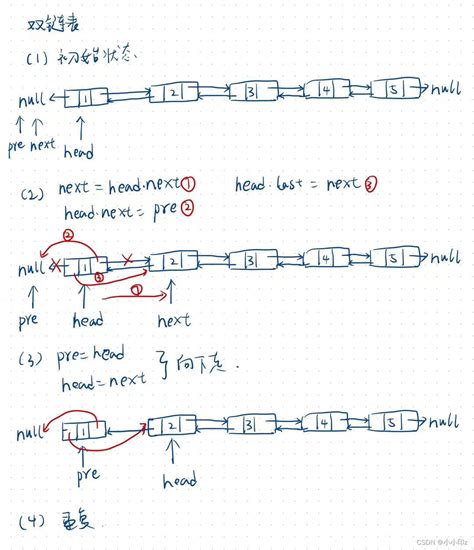 双链表
(1) 初始状态.
null 1 2 3 4 5 null
pre next head
(2) next = head.next ① head.last = next ③
head.next = pre ②
② ③ ①
null 1 2 3 4 5 null
pre head next
(3) pre = head
head = next } 向下走.
null 1 2 3 4 5 null
pre head
(4) 重复.
CSDN @小小印z